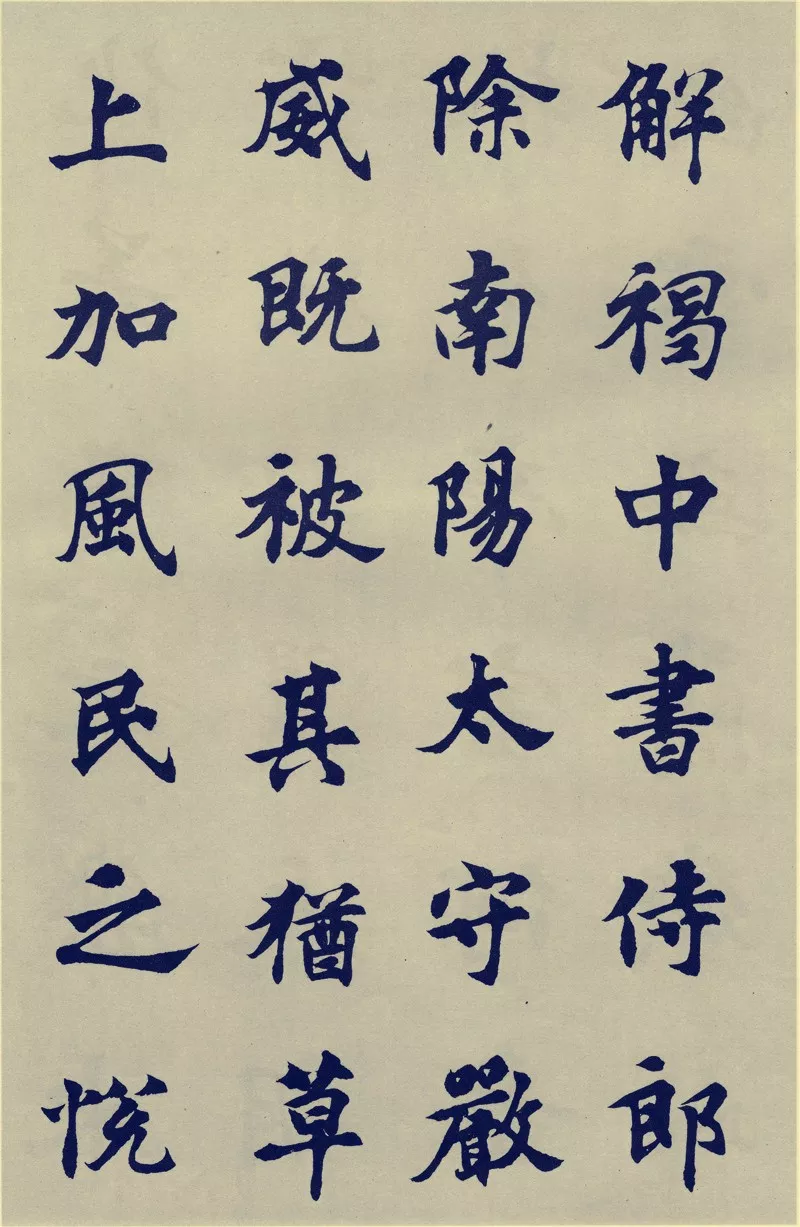 解褐中書侍郎
除南陽太守嚴
威既被其猶草
上加風民之悅